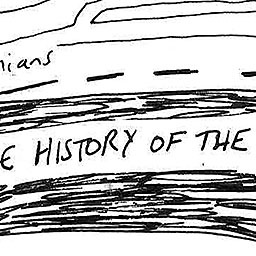 nians
E HISTORY OF THE